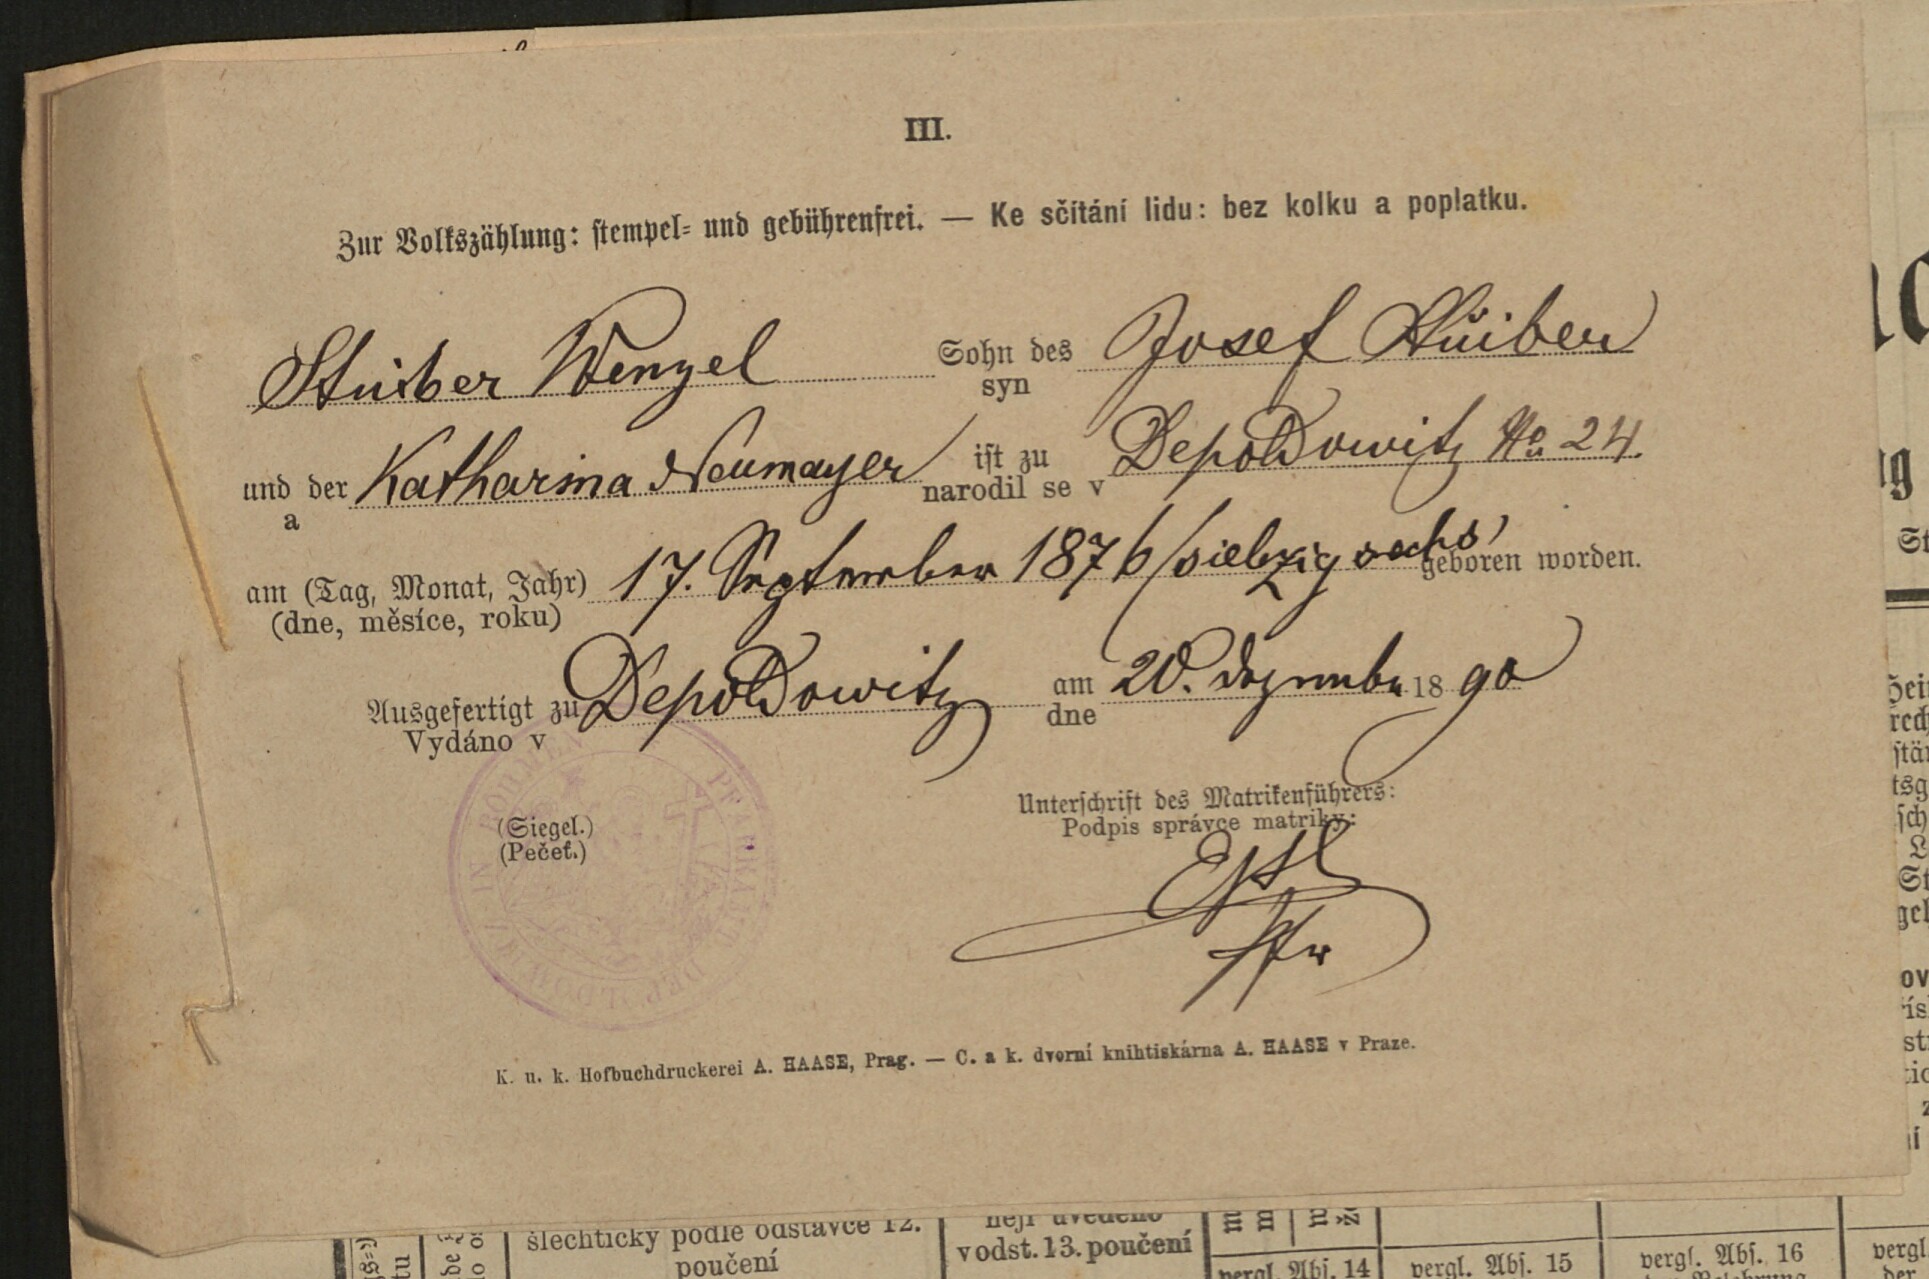 III.
Zur Volkszählung: stempel= und gebührenfrei. — Ke sčítání lidu: bez kolku a poplatku.
Stuiber Wenzel Sohn des Josef Stuiber
syn
und der Katharina Neumayer ist zu Depoldowitz No 24.
a narodil se v
am (Tag, Monat, Jahr) 17. September 1876 /siebzig sechs/ geboren worden.
(dne, měsíce, roku)
Ausgefertigt zu Depoldowitz am 20. Dezember 18 90
Vydáno v dne
Unterschrift des Matrikenführers:
Podpis správce matriky:
(Siegel.)
(Pečeť.)
Pfr
PFARRAMT DEPOLDOWITZ IN BÖHMEN
K. u. k. Hofbuchdruckerei A. HAASE, Prag. — C. a k. dvorní knihtiskárna A. HAASE v Praze.
šlechtický podle odstavce 12.
poučení
nejí uvedeno
v odst. 13. poučení
vergl. Abs. 14
vergl. Abs. 15
vergl. Abs. 16
vergl.